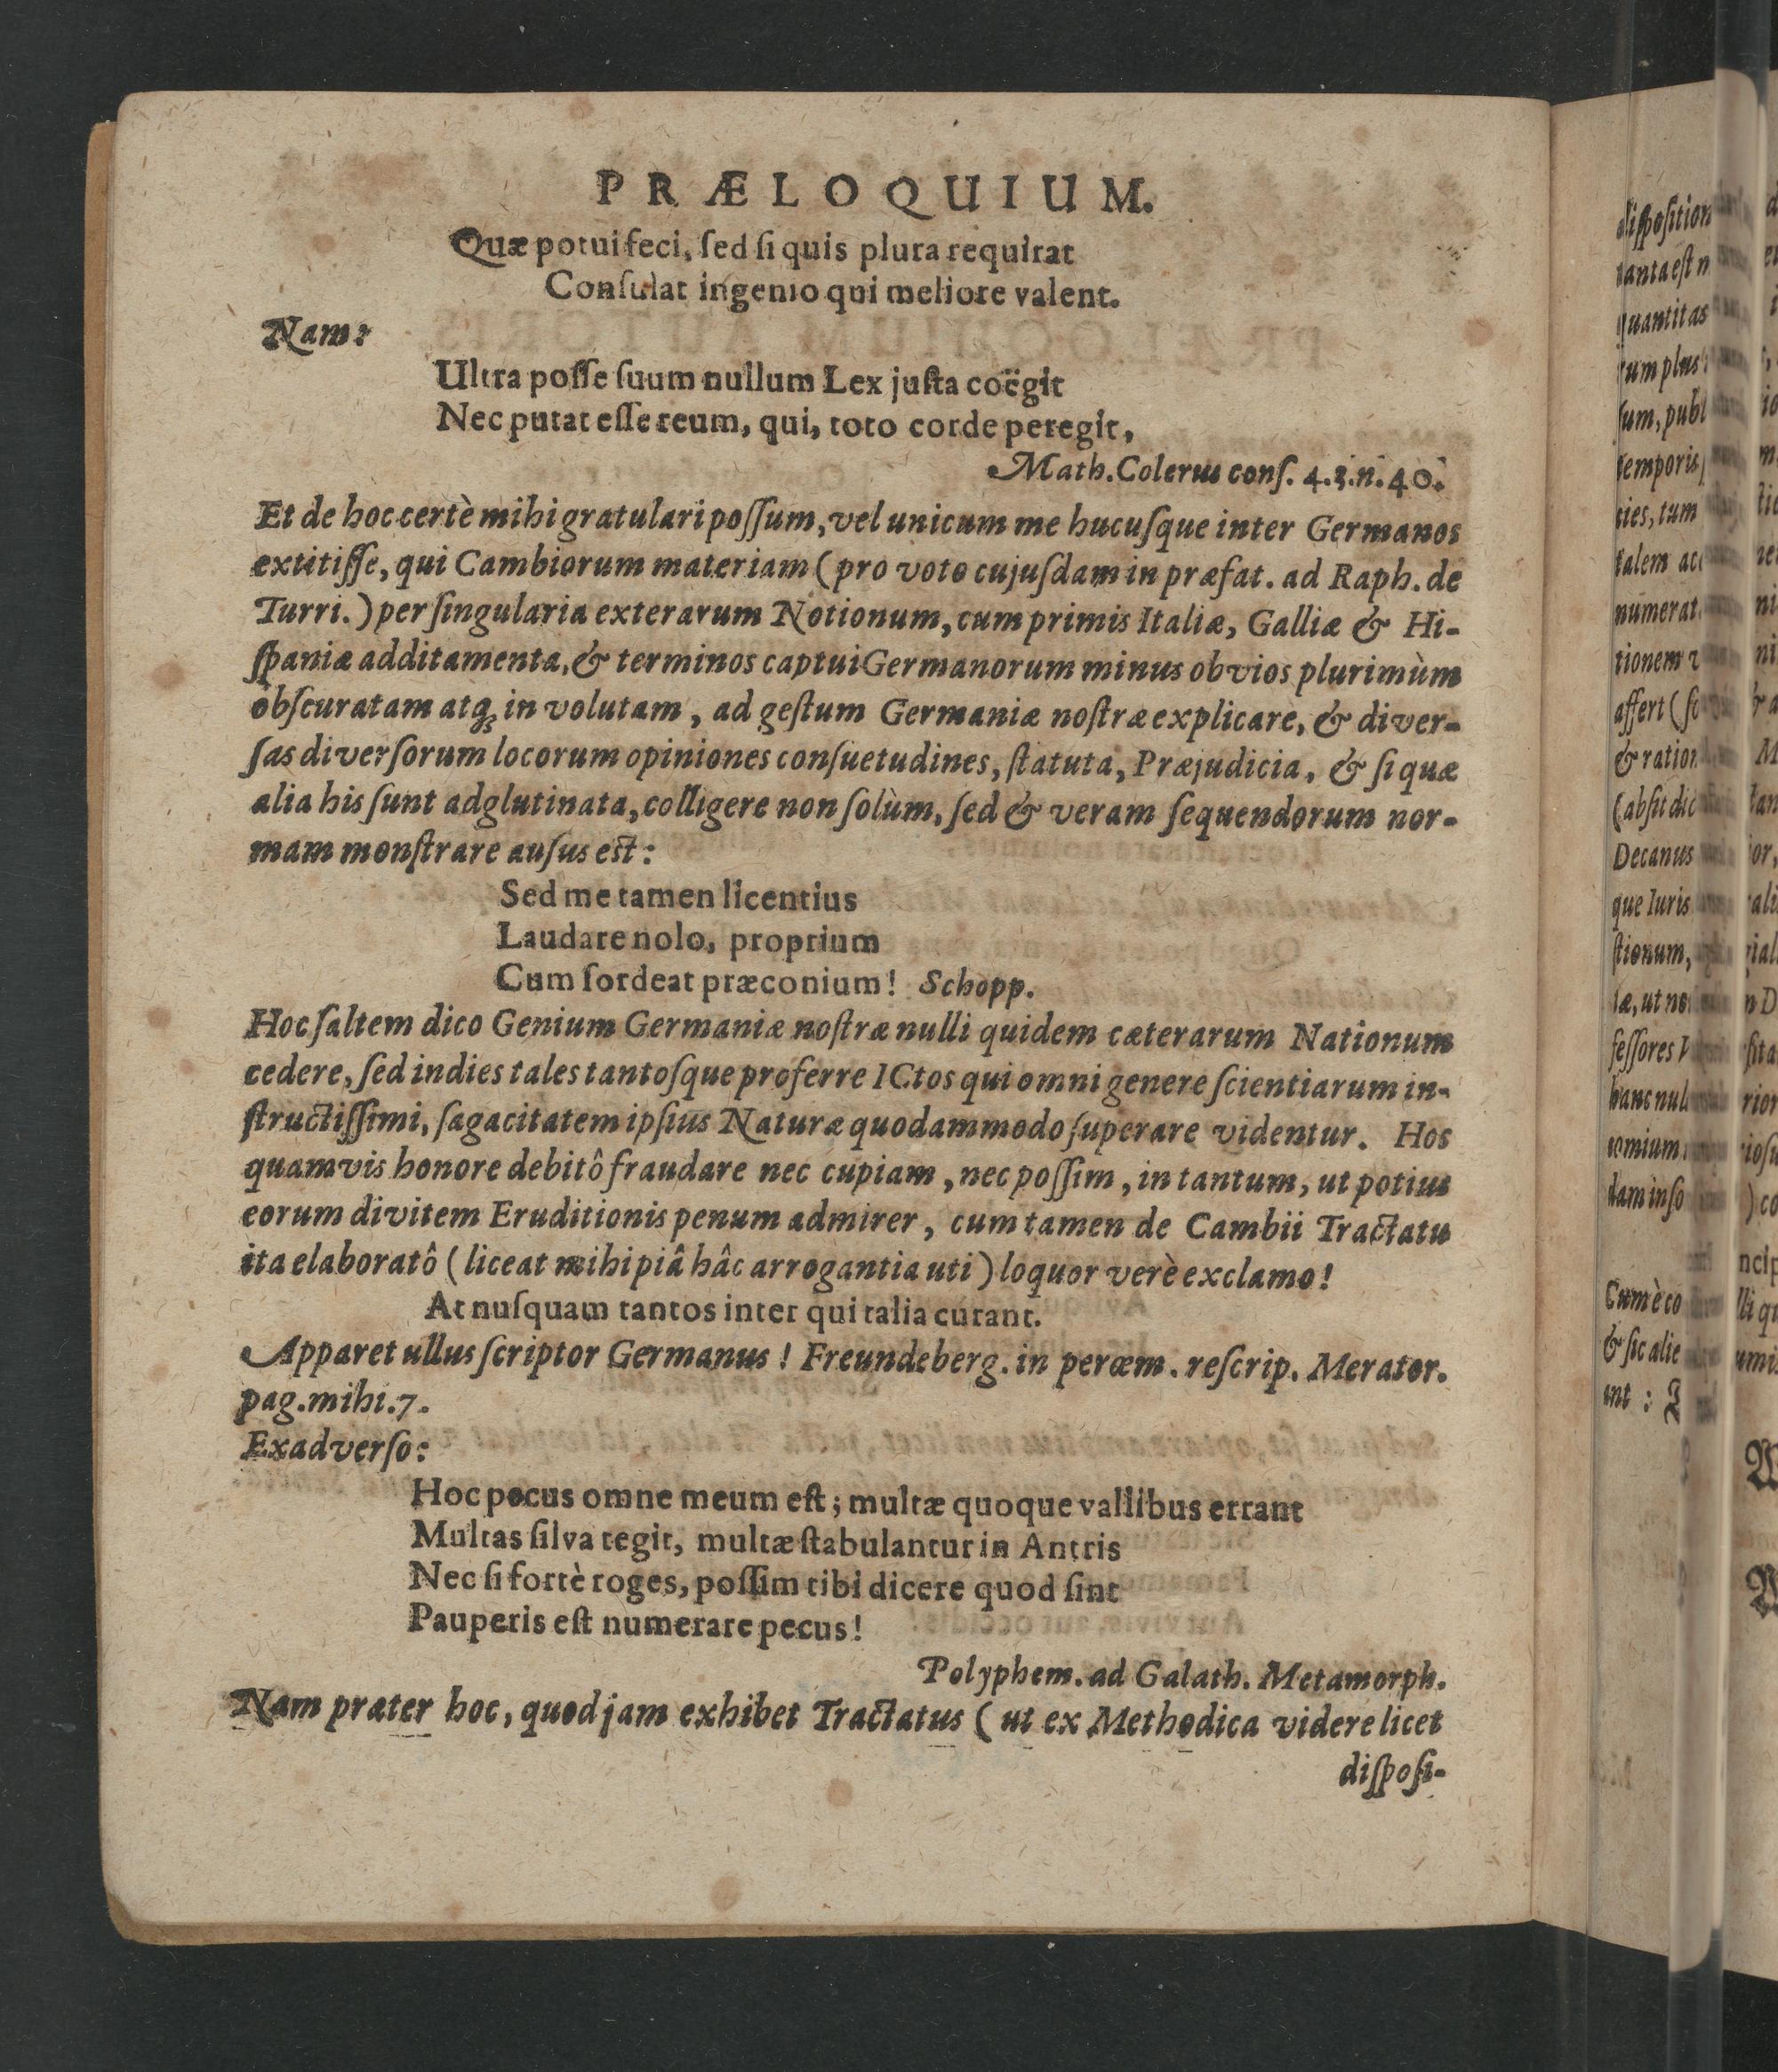 PRÆLOQUIUM.
Quæ potui feci, ſed ſi quis plura requirat
Conſulat ingenio qui meliore valent.
Nam:
Ultra poſſe ſuum nullum Lex juſta coëgit
Nec putat eſſe reum, qui, toto corde peregit,
Math. Colerus conſ. 4.3.n.40.
Et de hoc certè mihi gratulari poſſum, vel unicum me hucuſque inter Germanos
extitiſſe, qui Cambiorum materiam (pro voto cujuſdam in præfat. ad Raph. de
Turri.) per ſingularia exterarum Notionum, cum primis Italiæ, Galliæ & Hi-
ſpaniæ additamenta, & terminos captui Germanorum minus obvios plurimùm
obſcuratam atq; in volutam, ad geſtum Germaniæ noſtræ explicare, & diver-
ſas diverſorum locorum opiniones conſuetudines, ſtatuta, Præjudicia, & ſi quæ
alia his ſunt adglutinata, colligere non ſolùm, ſed & veram ſequendorum nor-
mam monſtrare auſus eſt:
Sed me tamen licentius
Laudare nolo, proprium
Cum ſordeat præconium! Schopp.
Hoc ſaltem dico Genium Germaniæ noſtræ nulli quidem cæterarum Nationum
cedere, ſed indies tales tantoſque proferre ICtos qui omni genere ſcientiarum in-
ſtructiſſimi, ſagacitatem ipſius Naturæ quodammodo ſuperare videntur. Hos
quamvis honore debitô fraudare nec cupiam, nec poſſim, in tantum, ut potius
eorum divitem Eruditionis penum admirer, cum tamen de Cambii Tractatu
ita elaboratô (liceat mihi piâ hâc arrogantia uti) loquor verè exclamo!
At nuſquam tantos inter qui talia curant.
Apparet ullus ſcriptor Germanus! Freundeberg. in peræm. reſcrip. Merator.
pag. mihi. 7.
Ex adverſo:
Hoc pecus omne meum eſt; multæ quoque vallibus errant
Multas ſilva tegit, multæ ſtabulantur in Antris
Nec ſi fortè roges, poſſim tibi dicere quod ſint
Pauperis eſt numerare pecus!
Polyphem. ad Galath. Metamorph.
Nam præter hoc, quod jam exhibet Tractatus (ut ex Methodica videre licet
diſpoſi-